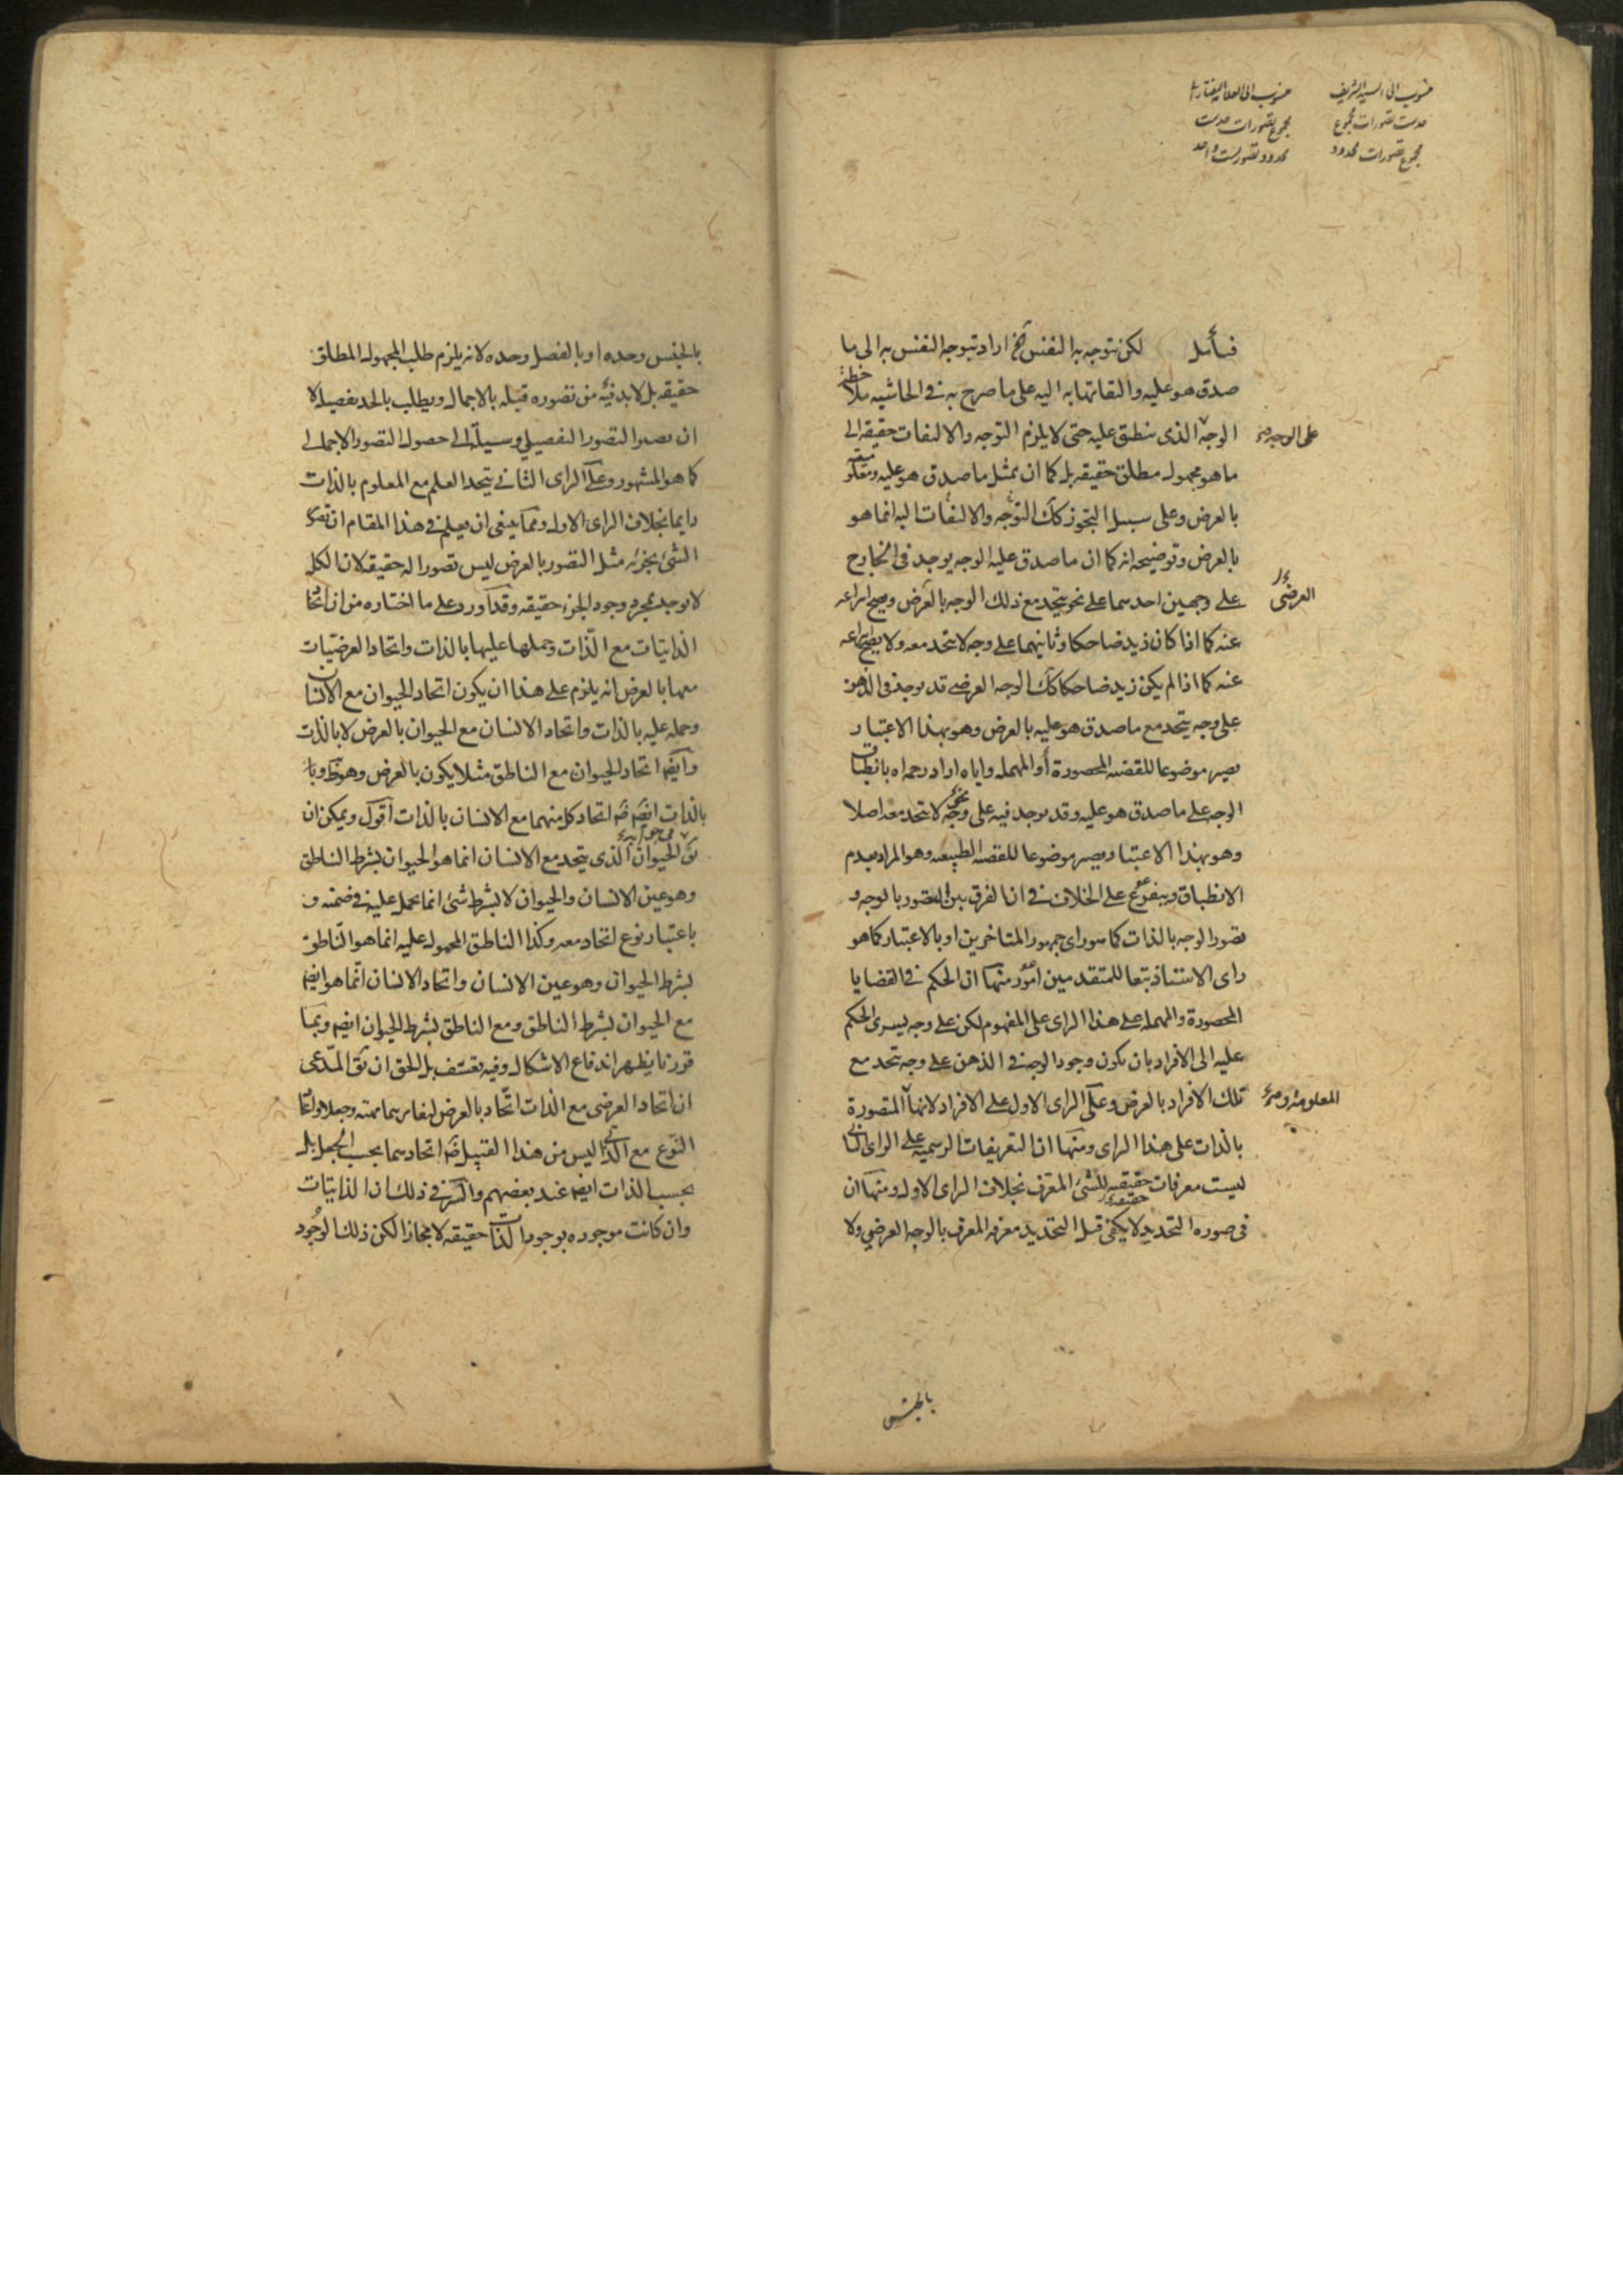 منسوب الى السيد الشريف
حدست تصورات مجموع
مجموع تصورات محدود
منسوب الى العلامه التفتازانى
مجموع تصورات حدست
محدود تصوريست واحد
فتأمل لكن تتوجه به النفس الخ اراد بتوجه النفس به الى ما
صدق هو عليه والتفاتها به اليه على ما صرح به فى الحاشيه ملاحظة
الوجه الذى ينطبق عليه حتى لا يلزم التوجه والالتفات حقيقه الى
على الوجه
ما هو مجهول مطلق حقيقه بل كما ان تمثل ما صدق هو عليه وتعقله
بالعرض وعلى سبيل التجوز كك التوجه والالتفات اليه انما هو
بالعرض وتوضيحه انه كما ان ما صدق عليه الوجه يوجد فى الخارج
على وجهين احدهما على نحو يتحد مع ذلك الوجه بالعرض ويصح انتزاعه
العرضى
عنه كما اذا كان زيد ضاحكا وثانيهما على وجه لا يتحد معه ولا يصح انتزاعه
عنه كما اذا لم يكن زيد ضاحكا كك الوجه العرضى قد يوجد فى الذهن
على وجه يتحد مع ما صدق هو عليه بالعرض وهو بهذا الاعتبار
يصير موضوعا للقضيه المحصورة أو المهمله واياه اراد رحمه اه بانطباق
الوجه على ما صدق هو عليه وقد يوجد فيه على وجه لا يتحد معه اصلا
نحو
وهو بهذا الاعتبار يصير موضوعا للقضيه الطبيعيه وهو المراد بعدم
الانطباق ويتفرع على الخلاف فى ان الفرق بين التصور بالوجه و
تصور الوجه بالذات كما هو راى جمهور المتاخرين او بالاعتبار كما هو
راى الاستاذ تبعا للمتقدمين امور منها ان الحكم فى القضايا
المحصورة والمهمله على هذا الراى على المفهوم لكن على وجه يسرى الحكم
عليه الى الأفراد بان يكون وجود الوجه فى الذهن على وجه يتحد مع
تلك الافراد بالعرض وعلى الراى الاول على الافراد لانها المتصورة
المعلومة و
بالذات على هذا الراى ومنها ان التعريفات الرسميه على الراى الثانى
ليست معرفات حقيقيه للشئ المعرف بخلاف الراى الاول ومنها ان
فى صوره التحديد لا يكفى قبل التحديد معرفه المعرف بالوجه العرضي ولا
حقيقة
بالجنس
بالجنس وحده او بالفصل وحده لانه يلزم طلب المجهول المطلق
حقيقه بل لابد فيه من تصوره قبله بالاجمال ويطلب بالحد تفصيله لا
ان يصير التصور التفصيلي وسيلة الى حصول التصور الاجمالى
كما هو المشهور وعلى الراى الثانى يتحد العلم مع المعلوم بالذات
دايما بخلاف الراى الاول ومما ينبغى ان يعلم فى هذا المقام ان تصور
الشئ بجزئه مثل التصور بالعرض ليس تصورا له حقيقه لان الكل
لا يوجد بمجرد وجود الجزء حقيقه وقد اورد على ما اختاره من ان اتحاد
الذاتيات مع الذات وحملها عليها بالذات واتحاد العرضيات
معها بالعرض انه يلزم على هذا ان يكون اتحاد الحيوان مع الانسان
وحمله عليه بالذات واتحاد الانسان مع الحيوان بالعرض لا بالذات
وايضا اتحاد الحيوان مع الناطق مثلا يكون بالعرض وهو
بالذات ايضا اتحاد كل منهما مع الانسان بالذات اقول ويمكن ان
فى جوابه
يق الحيوان الذى يتحد مع الانسان انما هو الحيوان بشرط الناطق
وهو عين الانسان والحيوان لا بشرط شئ انما يحمل عليه فى ضمنه و
باعتبار نوع اتحاد معه وكذا الناطق المحمول عليه انما هو الناطق
بشرط الحيوان وهو عين الانسان واتحاد الانسان انما هو ايضا
مع الحيوان بشرط الناطق ومع الناطق بشرط الحيوان ايضا وبما
قررنا يظهر اندفاع الاشكال وفيه تعسف بل الحق ان يق المدعى
ان اتحاد العرضى مع الذات اتحاد بالعرض لتغايرهما وجعلا واتحاد
النوع مع الذاتى ليس من هذا القبيل اتحادهما بحسب الجعل بل
بحسب الذات ايضا عند بعضهم والسر فى ذلك ان الذاتيات
وان كانت موجوده بوجود الذات حقيقه لا مجازا لكن ذلك الوجود